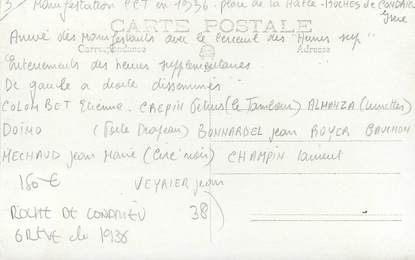 3/ Manifestation PCT en 1936 - place de la Halle - ROCHES de CONDRIEU
Isère
CARTE POSTALE
Correspondance Adresse
Arrivé des Manifestants avec le cercueil des "Heures sup"
Enterrements des heures supplémentaires
De gauche a droite disseminés :
COLOMBET Etienne - CREPIN Petrus (le Tambour) ALMANZA (lunettes)
DOÏMO (Porte Drapeau) BONNARDEL Jean ROYER GAUCHON
MECHAUD Jean Marie (Ciré noir) CHAMPIN Laurent
150 € VEYRIER Jean
ROCHE DE CONDRIEU 38
GRÈVE de 1936